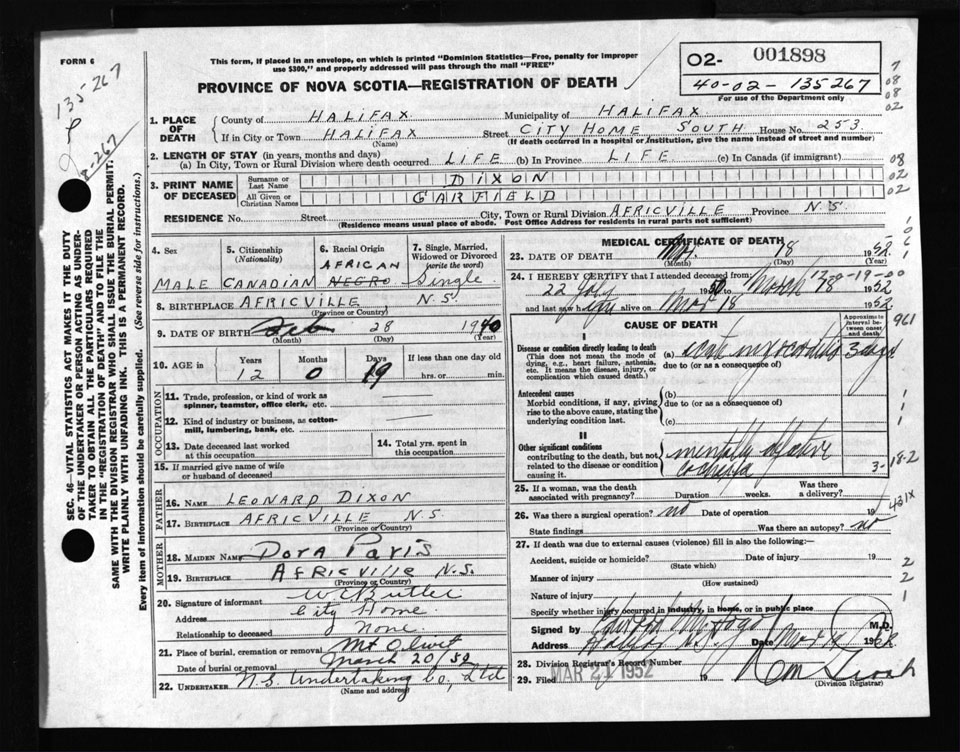 FORM 6
This form, if placed in an envelope, on which is printed "Dominion Statistics—Free, penalty for improper
use $300," and properly addressed will pass through the mail "FREE"
PROVINCE OF NOVA SCOTIA—REGISTRATION OF DEATH
02- 001898
40-02-135267
For use of the Department only
135267
SEC. 46—VITAL STATISTICS ACT MAKES IT THE DUTY
OF THE UNDERTAKER OR PERSON ACTING AS UNDER-
TAKER TO OBTAIN ALL THE PARTICULARS REQUIRED
IN THE "REGISTRATION OF DEATH" AND TO FILE THE
SAME WITH THE DIVISION REGISTRAR WHO SHALL ISSUE THE BURIAL PERMIT.
WRITE PLAINLY WITH UNFADING INK. THIS IS A PERMANENT RECORD.
Every item of information should be carefully supplied. (See reverse side for instructions.)
1. PLACE OF DEATH
County of HALIFAX Municipality of HALIFAX
If in City or Town HALIFAX Street CITY HOME SOUTH House No. 253
(Name) (If death occurred in a hospital or institution, give the name instead of street and number)
2. LENGTH OF STAY (in years, months and days)
(a) In City, Town or Rural Division where death occurred LIFE (b) In Province LIFE (c) In Canada (if immigrant)
3. PRINT NAME OF DECEASED
Surname or Last Name DIXON
All Given or Christian Names GARFIELD
RESIDENCE No. Street City, Town or Rural Division AFRICVILLE Province N.S.
(Residence means usual place of abode. Post Office Address for residents in rural parts not sufficient)
4. Sex MALE
5. Citizenship (Nationality) CANADIAN
6. Racial Origin AFRICAN NEGRO
7. Single, Married, Widowed or Divorced (write the word) Single
8. BIRTHPLACE AFRICVILLE N.S.
(Province or Country)
9. DATE OF BIRTH Feb 28 1940
(Month) (Day) (Year)
10. AGE in Years Months Days If less than one day old
12 0 19 hrs. or min.
OCCUPATION
11. Trade, profession, or kind of work as
spinner, teamster, office clerk, etc.
12. Kind of industry or business, as cotton-
mill, lumbering, bank, etc.
13. Date deceased last worked
at this occupation
14. Total yrs. spent in
this occupation
15. If married give name of wife
or husband of deceased
FATHER
16. NAME LEONARD DIXON
17. BIRTHPLACE AFRICVILLE N.S.
(Province or Country)
MOTHER
18. MAIDEN NAME Dora Paris
19. BIRTHPLACE AFRICVILLE N.S.
(Province or Country)
20. Signature of informant W E Butler
Address City Home
Relationship to deceased None
21. Place of burial, cremation or removal Mt Olivet
Date of burial or removal March 20/52
22. UNDERTAKER N.S. Undertaking Co, Ltd
(Name and address)
MEDICAL CERTIFICATE OF DEATH
23. DATE OF DEATH 18 1952
(Month) (Day) (Year)
24. I HEREBY CERTIFY that I attended deceased from:
22 July 19 to March 18 1952
and last saw him alive on Mar 18 1952
CAUSE OF DEATH
Approximate interval between onset and death
I
Disease or condition directly leading to death
(This does not mean the mode of
dying, e.g., heart failure, asthenia,
etc. It means the disease, injury, or
complication which caused death.)
(a) myocarditis 3 days
due to (or as a consequence of)
Antecedent causes
Morbid conditions, if any, giving
rise to the above cause, stating the
underlying condition last.
(b)
due to (or as a consequence of)
(c)
II
Other significant conditions
contributing to the death, but not
related to the disease or condition
causing it.
mentally defective
25. If a woman, was the death
associated with pregnancy? Duration weeks. Was there
a delivery?
26. Was there a surgical operation? no Date of operation 19
State findings Was there an autopsy? no
27. If death was due to external causes (violence) fill in also the following:—
Accident, suicide or homicide? Date of injury 19
(State which)
Manner of injury
(How sustained)
Nature of injury
Specify whether injury occurred in industry, in home, or in public place
Signed by M.D.
Address Halifax N.S. Date
28. Division Registrar's Record Number
29. Filed MAR 21 1952 19
(Division Registrar)
961
18-2
431X